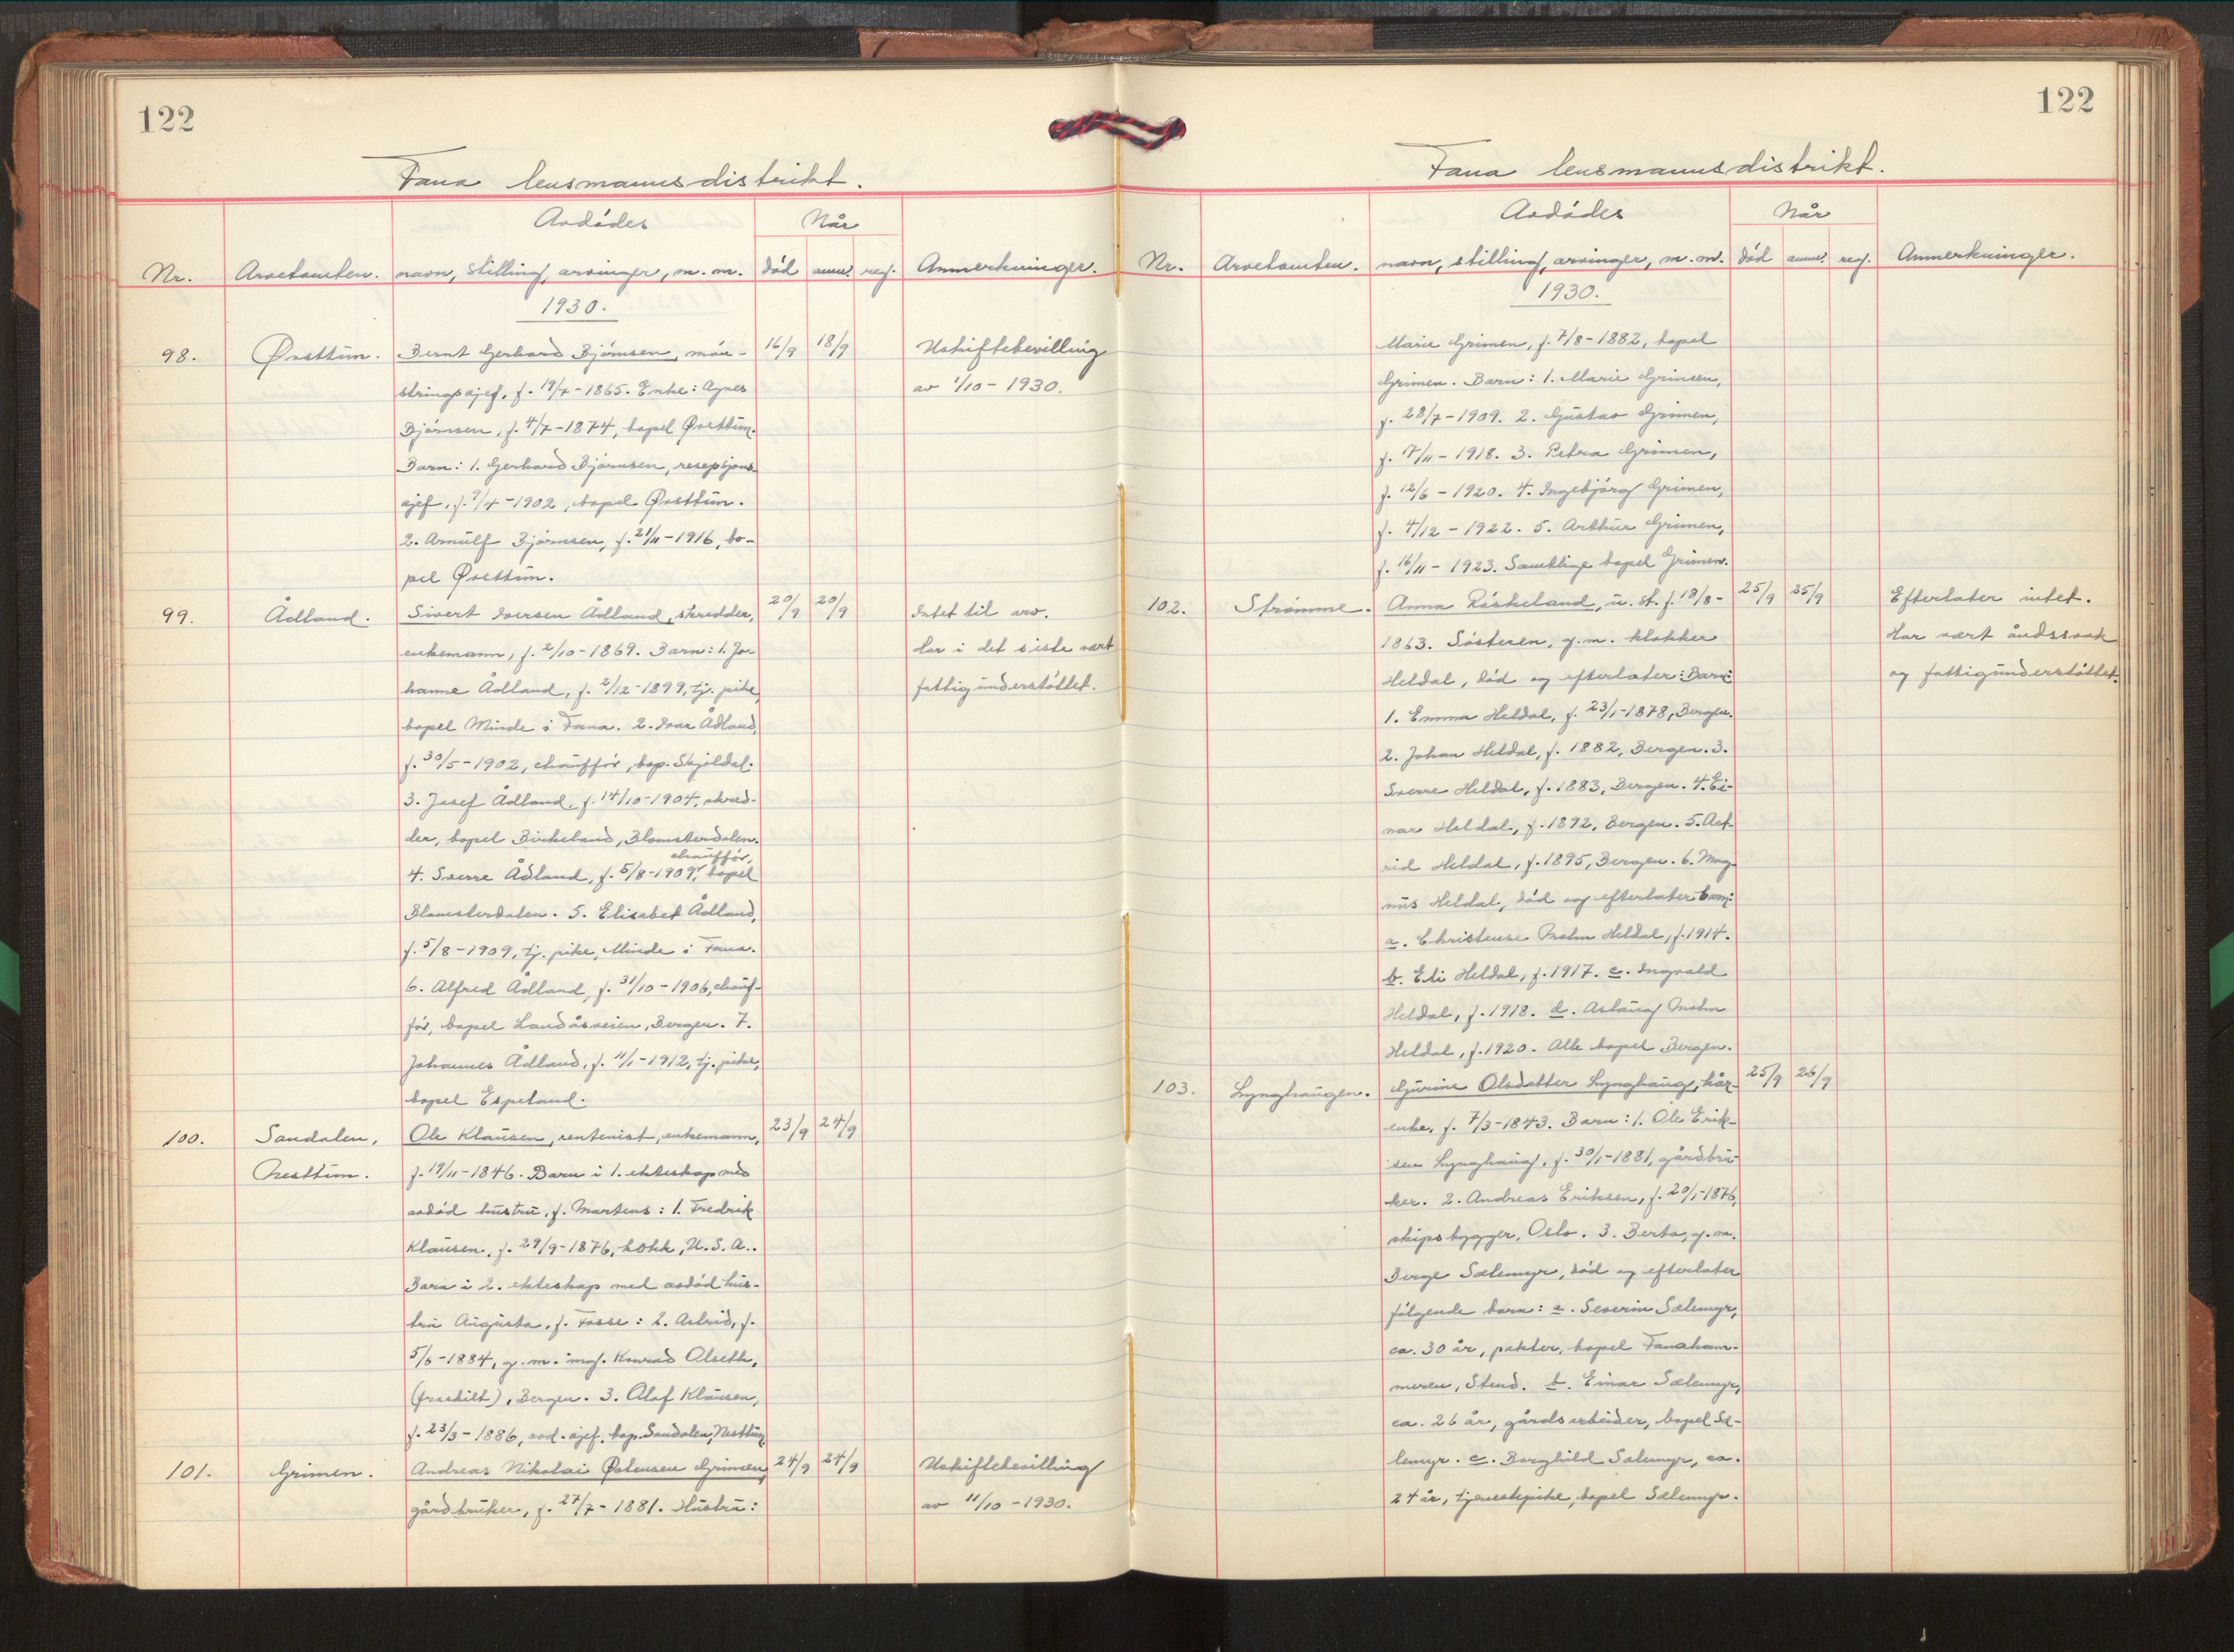 122
Fana lensmannsdistrikt.
Avdødes
Når
Nr. Arvetomten. navn, stilling, arvinger, m. m. død anm. reg. Anmerkninger.
1930.
98. Øvsttun. Bernt Gerhard Bjørnsen, møn- 16/9 18/9 Uskiftebevilling
stringssjef, f. 19/7-1865. Enke: Agnes av 1/10-1930.
Bjørnsen, f. 4/7-1874, bopel Øvsttun.
Barn: 1. Gerhard Bjørnsen, resepsjons-
sjef, f. 7/4-1902, bopel Øvsttun.
2. Arnulf Bjørnsen, f. 21/11-1916, bo-
pel Øvsttun.
99. Ådland. Sivert Iversen Ådland, skredder, 20/9 20/9 Intet til arv.
enkemann, f. 2/10-1869. Barn: 1. Jo- Har i det siste vært
hanne Ådland, f. 2/12-1899, tj. pike, fattigunderstøttet.
bopel Minde i Fana. 2. Ivar Ådland,
f. 30/5-1902, chauffør, bop. Skjoldal.
3. Josef Ådland, f. 14/10-1904, skred-
der, bopel Birkeland, Blomsterdalen.
chauffør,
4. Sverre Ådland, f. 5/8-1909, bopel
Blomsterdalen. 5. Elisabet Ådland,
f. 5/8-1909, tj. pike, Minde i Fana.
6. Alfred Ådland, f. 31/10-1906, chauf-
før, bopel Landåsveien, Bergen. 7.
Johannes Ådland, f. 11/1-1912, tj. pike,
bopel Espeland.
100. Sandalen, Ole Klausen, rentenist, enkemann, 23/9 24/9
Nesttun. f. 19/11-1846. Barn i 1. ekteskap med
avdød hustru, f. Martens: 1. Fredrik
Klausen, f. 29/9-1876, kokk, U.S.A..
Barn i 2. ekteskap med avdød hus-
tru Augusta, f. Fosse: 2. Astrid, f.
5/6-1884, g. m. ing. Konrad Alseth,
(fraskilt), Bergen. 3. Olaf Klausen,
f. 23/3-1886, avd. sjef, bop. Sandalen, Nesttun.
101. Grimen. Andreas Nikolai Østensen Grimen, 24/9 27/9 Uskiftebevilling
gårdbruker, f. 27/7-1881. Hustru: av 11/10-1930.
122
Fana lensmannsdistrikt.
Avdødes
Når
Nr. Arvetomten. navn, stilling, arvinger, m. m. død anm. reg. Anmerkninger.
1930.
Marie Grimen, f. 7/8-1882, bopel
Grimen. Barn: 1. Marie Grimen,
f. 28/7-1909. 2. Gustav Grimen,
f. 17/11-1918. 3. Petra Grimen,
f. 12/6-1920. 4. Ingebjørg Grimen,
f. 4/12-1922. 5. Arthur Grimen,
f. 16/11-1923. Samtlige bopel Grimen.
102. Strømme. Anna Røskeland, u. st. f. 18/8- 25/9 25/9 Efterlater intet.
1863. Søsteren, g.m. klokker Har vært åndssvak
Heldal, død og efterlater: Barn: og fattigunderstøttet.
1. Emma Heldal, f. 23/1-1878, Bergen.
2. Johan Heldal, f. 1882, Bergen. 3.
Sverre Heldal, f. 1883, Bergen. 4. Ei-
nar Heldal, f. 1892, Bergen. 5. Ast-
rid Heldal, f. 1895, Bergen. 6. Mag-
nus Heldal, død og efterlater barn:
a. Christense Holm Heldal, f. 1914.
b. Eli Heldal, f. 1917. c. Ingvald
Heldal, f. 1918. d. Aslaug Holm
Heldal, f. 1920. Alle bopel Bergen.
103. Lynghaugen. Gurine Olsdatter Lynghaug, kår- 25/9 26/9
enke, f. 7/3-1843. Barn: 1. Ole Erik-
sen Lynghaug, f. 30/1-1881, gårdbru-
ker. 2. Andreas Eriksen, f. 20/1-1876,
skipsbygger, Oslo. 3. Berta, g.m.
Berge Sælemyr, død og efterlater
følgende barn: a. Severin Sælemyr,
ca. 30 år, pakter, bopel Fanaham-
meren, Stend. b. Einar Sælemyr,
ca. 26 år, gårdsarbeider, bopel Sæ-
lemyr. c. Borghild Sælemyr, ca.
24 år, tjenestepike, bopel Sælemyr.